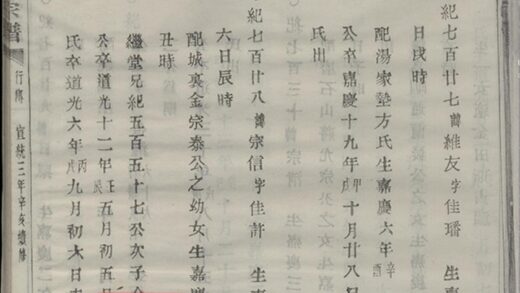 紀七百廿七諱維友字佳璠 生嘉
日戌時
配湯家墊方氏生嘉慶六年辛酉
公卒嘉慶十九年甲戌十月廿八日
氏出
紀七百廿八諱宗信字佳許 生嘉
六日辰時
配城裏金宗泰公之幼女生嘉慶
丑時
繼堂兄紀五百五十七公次子
公卒道光十二年壬辰五月初五日
氏卒道光六年丙戌九月初六日
宗譜 行傳 宣統三年辛亥續修